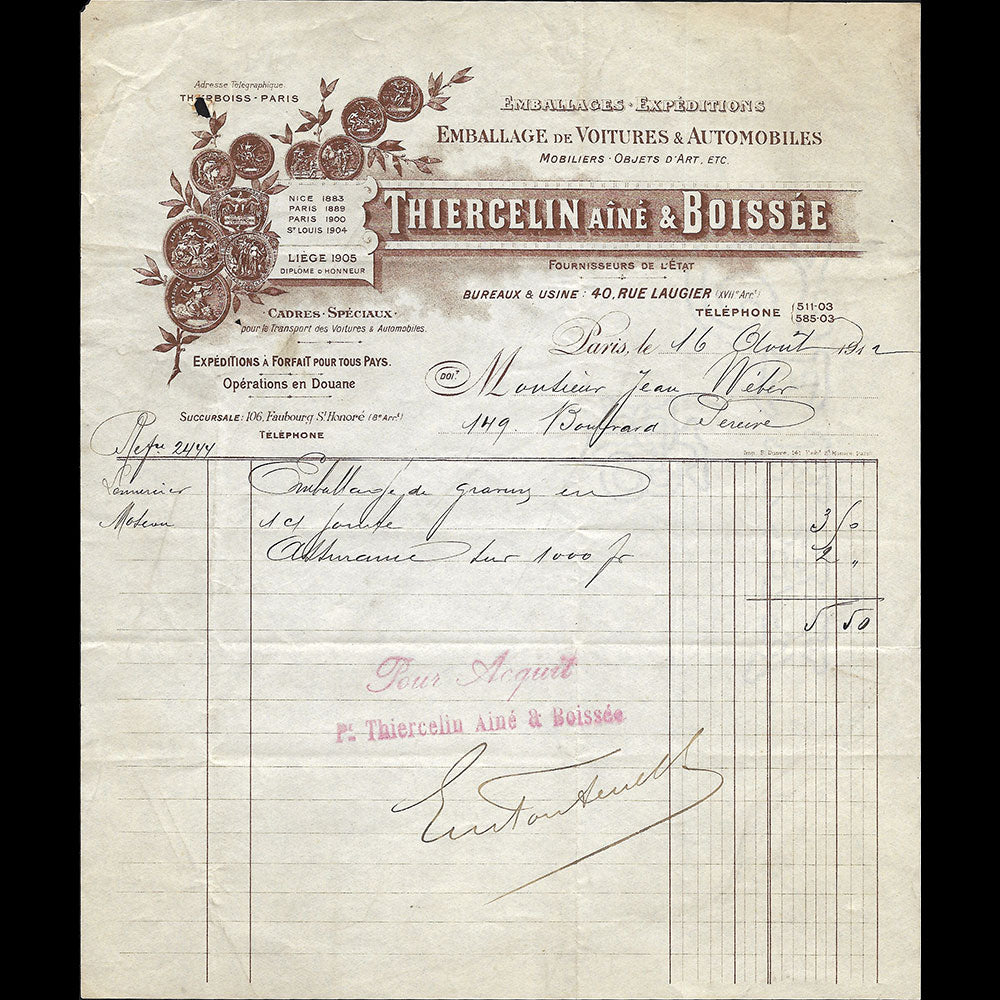 Adresse Télégraphique
THIERBOISS - PARIS
EMBALLAGES · EXPÉDITIONS
EMBALLAGE DE VOITURES & AUTOMOBILES
MOBILIERS · OBJETS D'ART, ETC.
NICE 1883
PARIS 1889
PARIS 1900
St LOUIS 1904
LIÉGE 1905
DIPLÔME D'HONNEUR
THIERCELIN AÎNÉ & BOISSÉE
FOURNISSEURS DE L'ÉTAT
BUREAUX & USINE : 40, RUE LAUGIER (XVIIe Arrt)
TÉLÉPHONE 511-03
585-03
· CADRES · SPÉCIAUX ·
pour le Transport des Voitures & Automobiles.
EXPÉDITIONS À FORFAIT POUR TOUS PAYS.
Opérations en Douane
SUCCURSALE : 106, Faubourg St Honoré (8e Arrt)
TÉLÉPHONE
Paris, le 16 Août 1912
DOIT
Monsieur Jean Wéber
149 Boulevard Pereire
Imp. 161, Paris
Emballage de en
Assurance sur 1000 fr
3 50
2 "
5 50
Pour Acquit
Pr. Thiercelin Ainé & Boissée